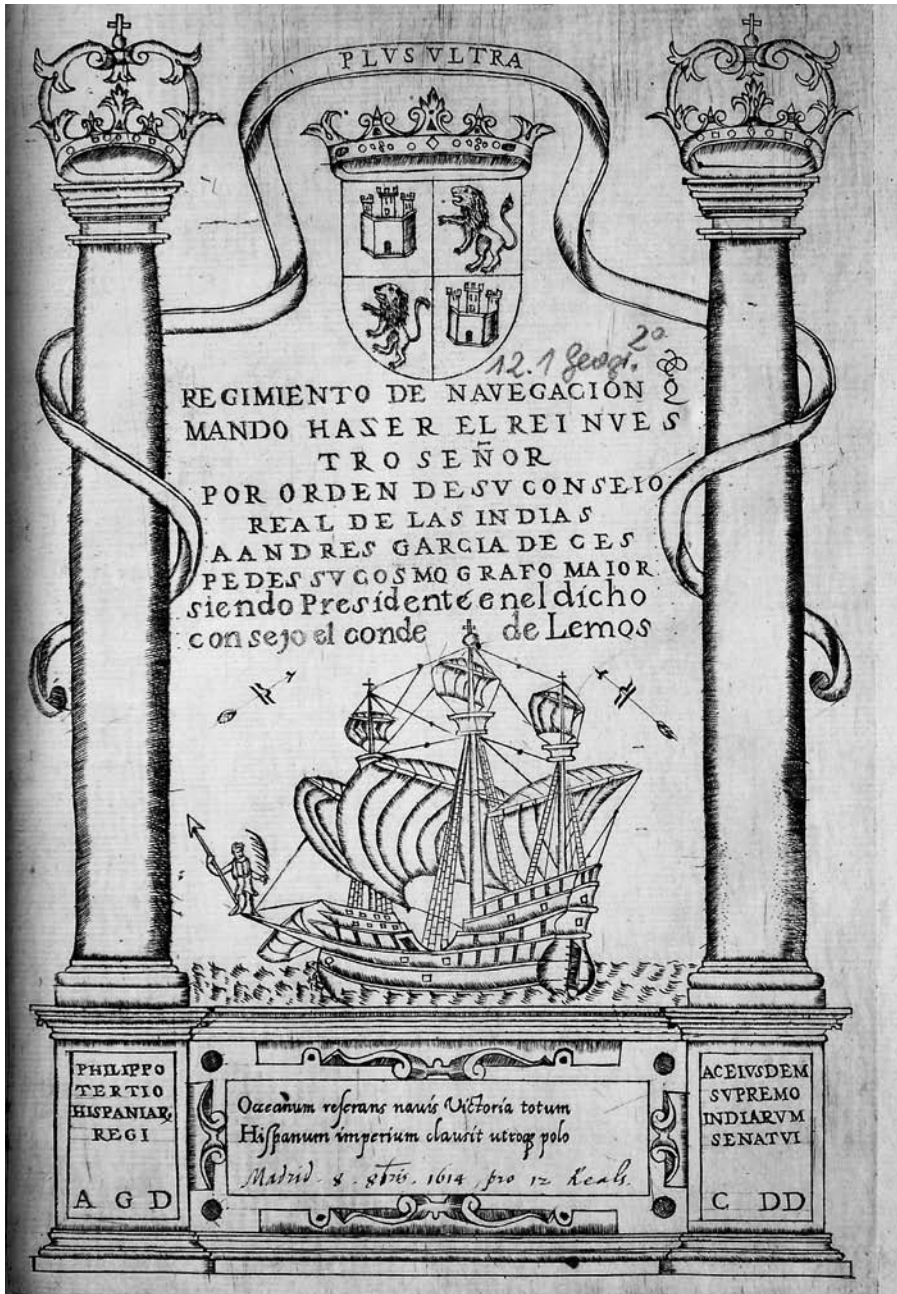 PLVS VLTRA
12.1 Geogr. 2º
REGIMIENTO DE NAVEGACIÓN Q
MANDO HAZER EL REI NVES
TRO SEÑOR
POR ORDEN DE SV CONSEIO
REAL DE LAS INDIAS
A ANDRES GARCIA DE CES
PEDES SV COSMOGRAFO MAIOR
siendo Presidente en el dicho
consejo el conde de Lemos
PHILIPPO
TERTIO
HISPANIAR
REGI
A G D
Occeanum reserans nauis Victoria totum
Hispanum imperium clausit utroq; polo
Madrid. 8. 8bris. 1614. pro 12 Reals.
AC EIVSDEM
SVPREMO
INDIARVM
SENATVI
C DD